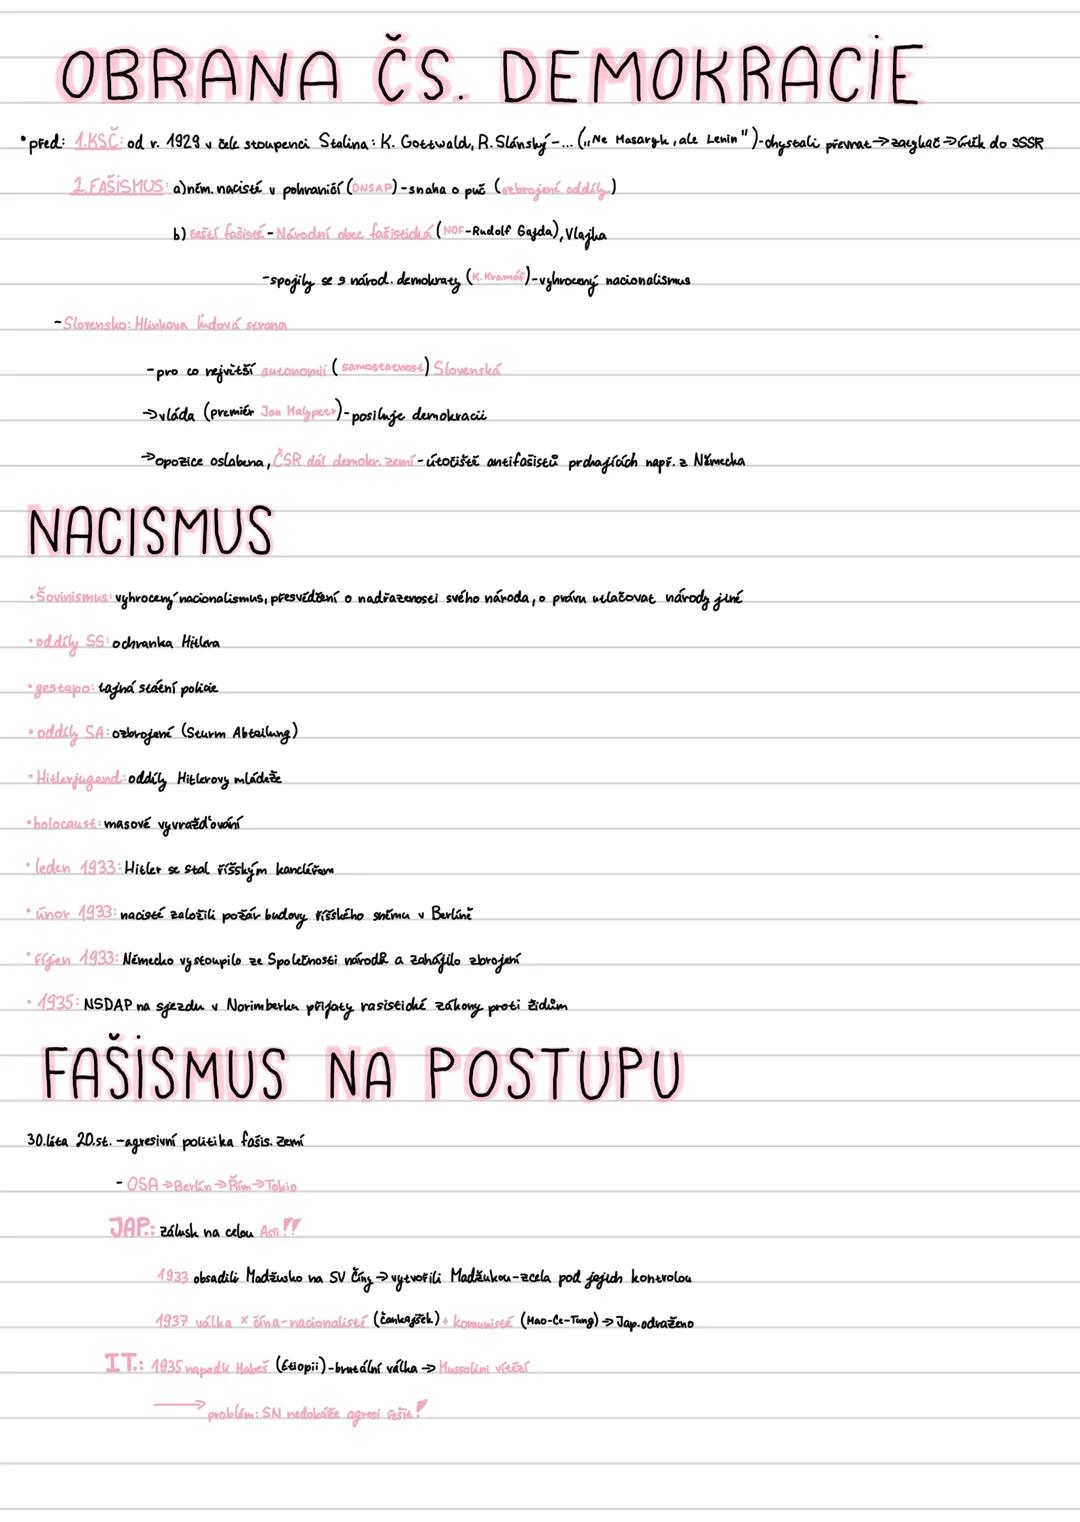 OBRANA ČS. DEMOKRACIE
• před: 1. KSČ: od r. 1929 v čele stoupenci Stalina: K. Gottwald, R. Slánský -... („Ne Masaryk, ale Lenin") - chystali převrat → zatykač → útěk do SSSR
2. FAŠISMUS: a) něm. nacisté v pohraničí (DNSAP) - snaha o puč (ozbrojené oddíly)
b) čeští fašisté - Národní obec fašistická (NOF - Rudolf Gajda), Vlajka
- spojily se s národ. demokraty (K. Kramář) - vyhrocený nacionalismus
- Slovensko: Hlinkova ľudová strana
- pro co největší autonomii (samostatnost) Slovenská
→ vláda (premiér Jan Malypetr) - posiluje demokracii
→ opozice oslabena, ČSR dál demokr. zemí - útočiště antifašistů prchajících např. z Německa
NACISMUS
• Šovinismus: vyhrocený nacionalismus, přesvědčení o nadřazenosti svého národa, o právu utlačovat národy jiné
• oddíly SS: ochranka Hitlera
• gestapo: tajná státní policie
• oddíly SA: ozbrojené (Sturm Abteilung)
• Hitlerjugend: oddíly Hitlerovy mládeže
• holocaust: masové vyvražďování
• leden 1933: Hitler se stal říšským kancléřem
• únor 1933: nacisté založili požár budovy říšského sněmu v Berlíně
• říjen 1933: Německo vystoupilo ze Společnosti národů a zahájilo zbrojení
• 1935: NSDAP na sjezdu v Norimberku přijaty rasistické zákony proti židům
FAŠISMUS NA POSTUPU
30. léta 20. st. - agresivní politika fašis. zemí
- OSA → Berlín → Řím → Tokio
JAP.: zálusk na celou Asii !!
1933 obsadili Madžusko na SV Číny → vytvořili Madžukou - zcela pod jejich kontrolou
1937 válka × čína - nacionalisté (čankajšek) + komunisté (Mao-Ce-Tung) → Jap. odraženo
IT.: 1935 napadli Habeš (Etiopii) - brutální válka → Mussolini vítězí
→ problém: SN nedokáže agresi řešit !